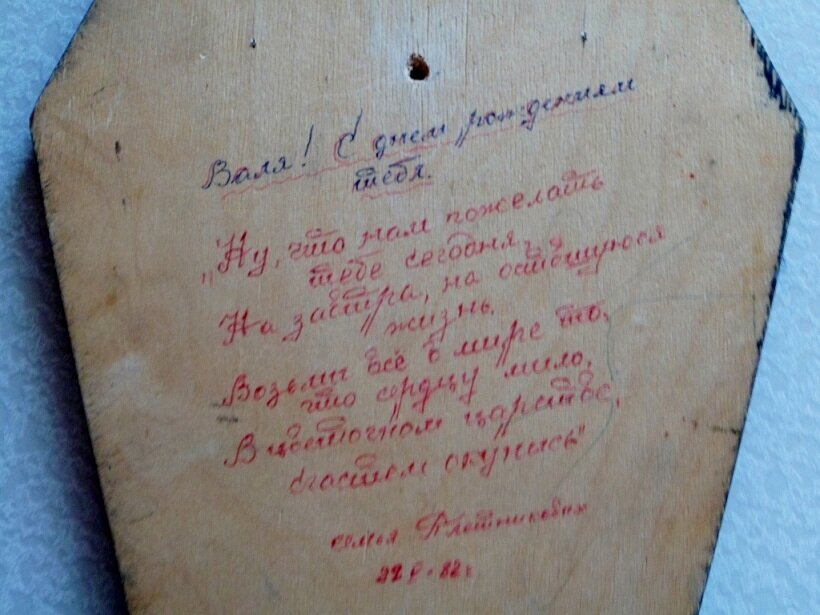 Валя! С днем рождением
тебя.
"Ну, что нам пожелать
тебе сегодня,
На завтра, на оставшуюся
жизнь.
Возьми всё в мире то,
что сердцу мило,
В цветочном царстве,
счастьем окунись"
семья Плотниковых
22 V - 82 г.